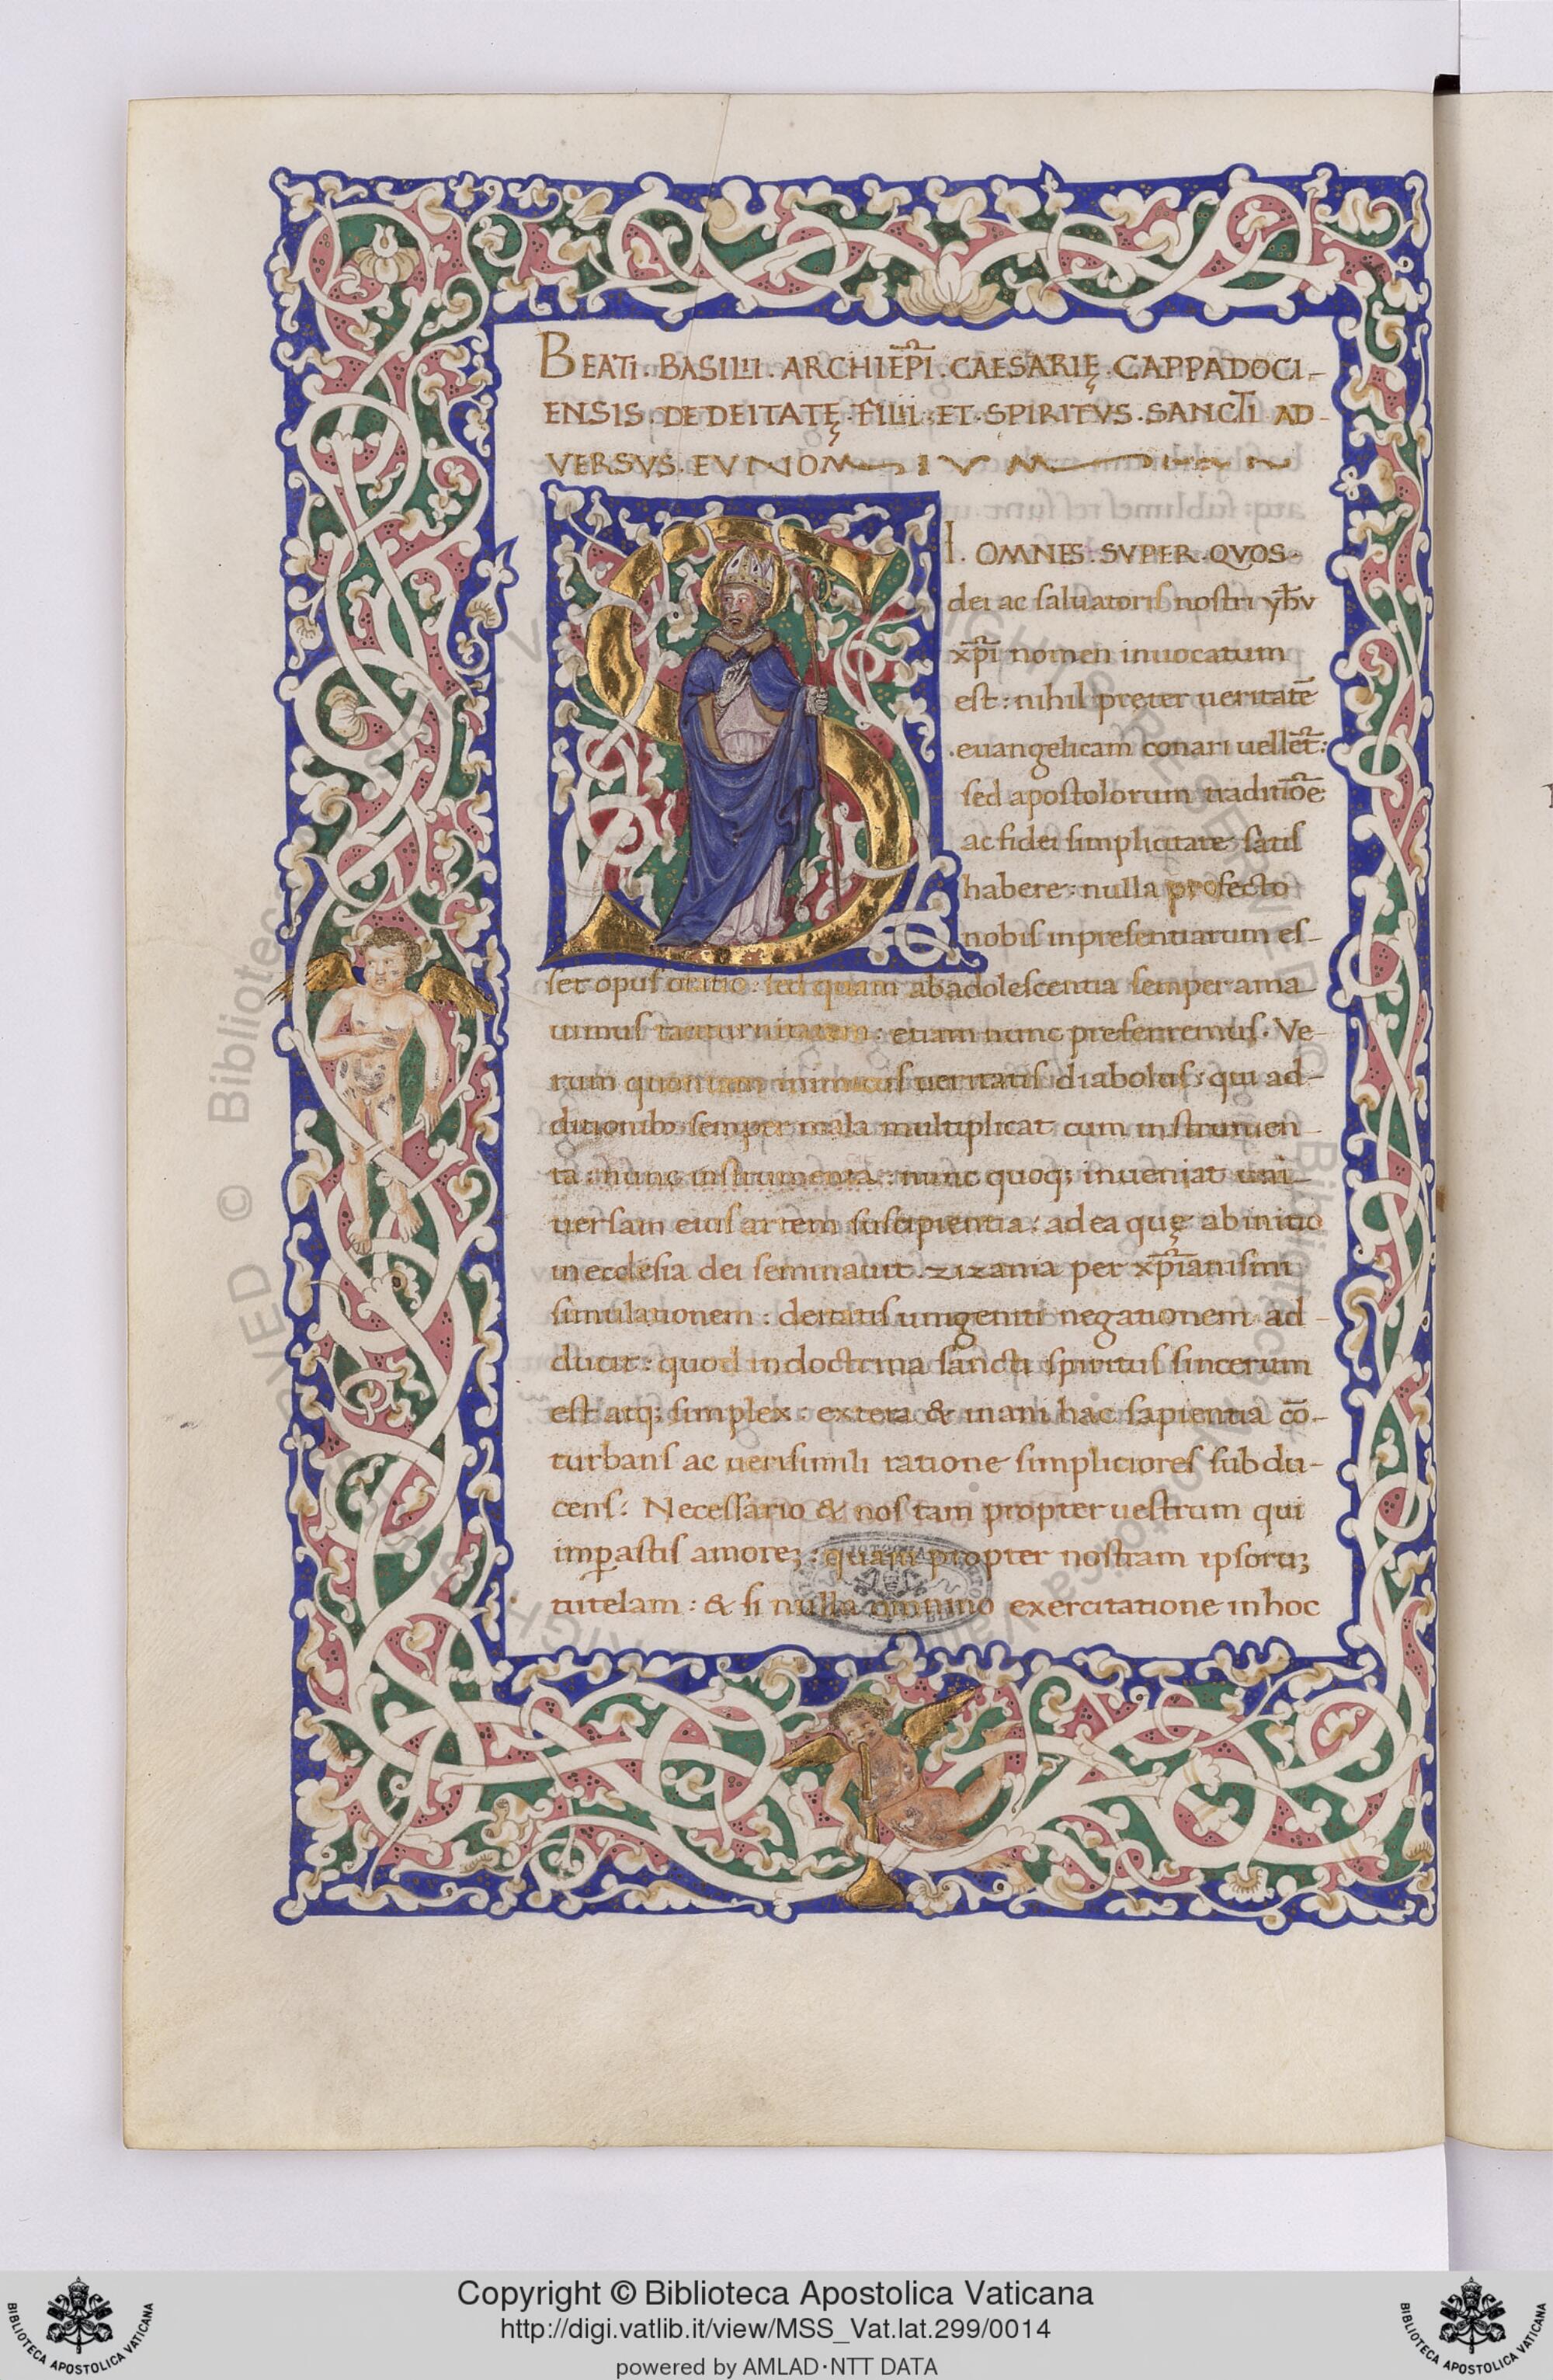 BEATI . BASILII . ARCHIEP̄I . CAESARIĘ . CAPPADOCI-
ENSIS . DE DEITATĘ . FILII . ET . SPIRITVS . SANCTI AD-
VERSVS . EVNOMIVM
SI . OMNES . SVPER . QVOS .
dei ac saluatoris nostri yh̄v
xp̄i nomen inuocatum
est : nihil preter ueritatē
euangelicam conari uellēt :
sed apostolorum traditiōe
ac fidei simplicitate satis
habere : nulla profecto
nobis inpresentiarum es-
set opus oratio : sed quam ab adolescentia semper ama-
uimus taciturnitatem : etiam nunc preferremus . Ve-
rum quoniam inimicus ueritatis diabolus : qui ad-
ditionib; semper mala multiplicat cum instrumen-
ta : nunc instrumenta : nunc quoq; inueniat uni-
uersam eius artem suscipientia : ad ea quę ab initio
in ecclesia dei seminauit . zizania per xp̄ianismi
simulationem : deitatis unigeniti negationem ad-
ducit : quod in doctrina sancti spiritus sincerum
est atq; simplex : extera & inani hac sapientia cō-
turbans ac uerisimili ratione simpliciores subdu-
cens : Necessario & nos tam propter uestrum qui
imꝑastis amorez : quam propter nostram ipsoruz
tutelam : & si nulla omnino exercitatione in hoc
Copyright © Biblioteca Apostolica Vaticana
http://digi.vatlib.it/view/MSS_Vat.lat.299/0014
powered by AMLAD·NTT DATA
BIBLIOTECA APOSTOLICA VATICANA
BIBLIOTECA APOSTOLICA VATICANA